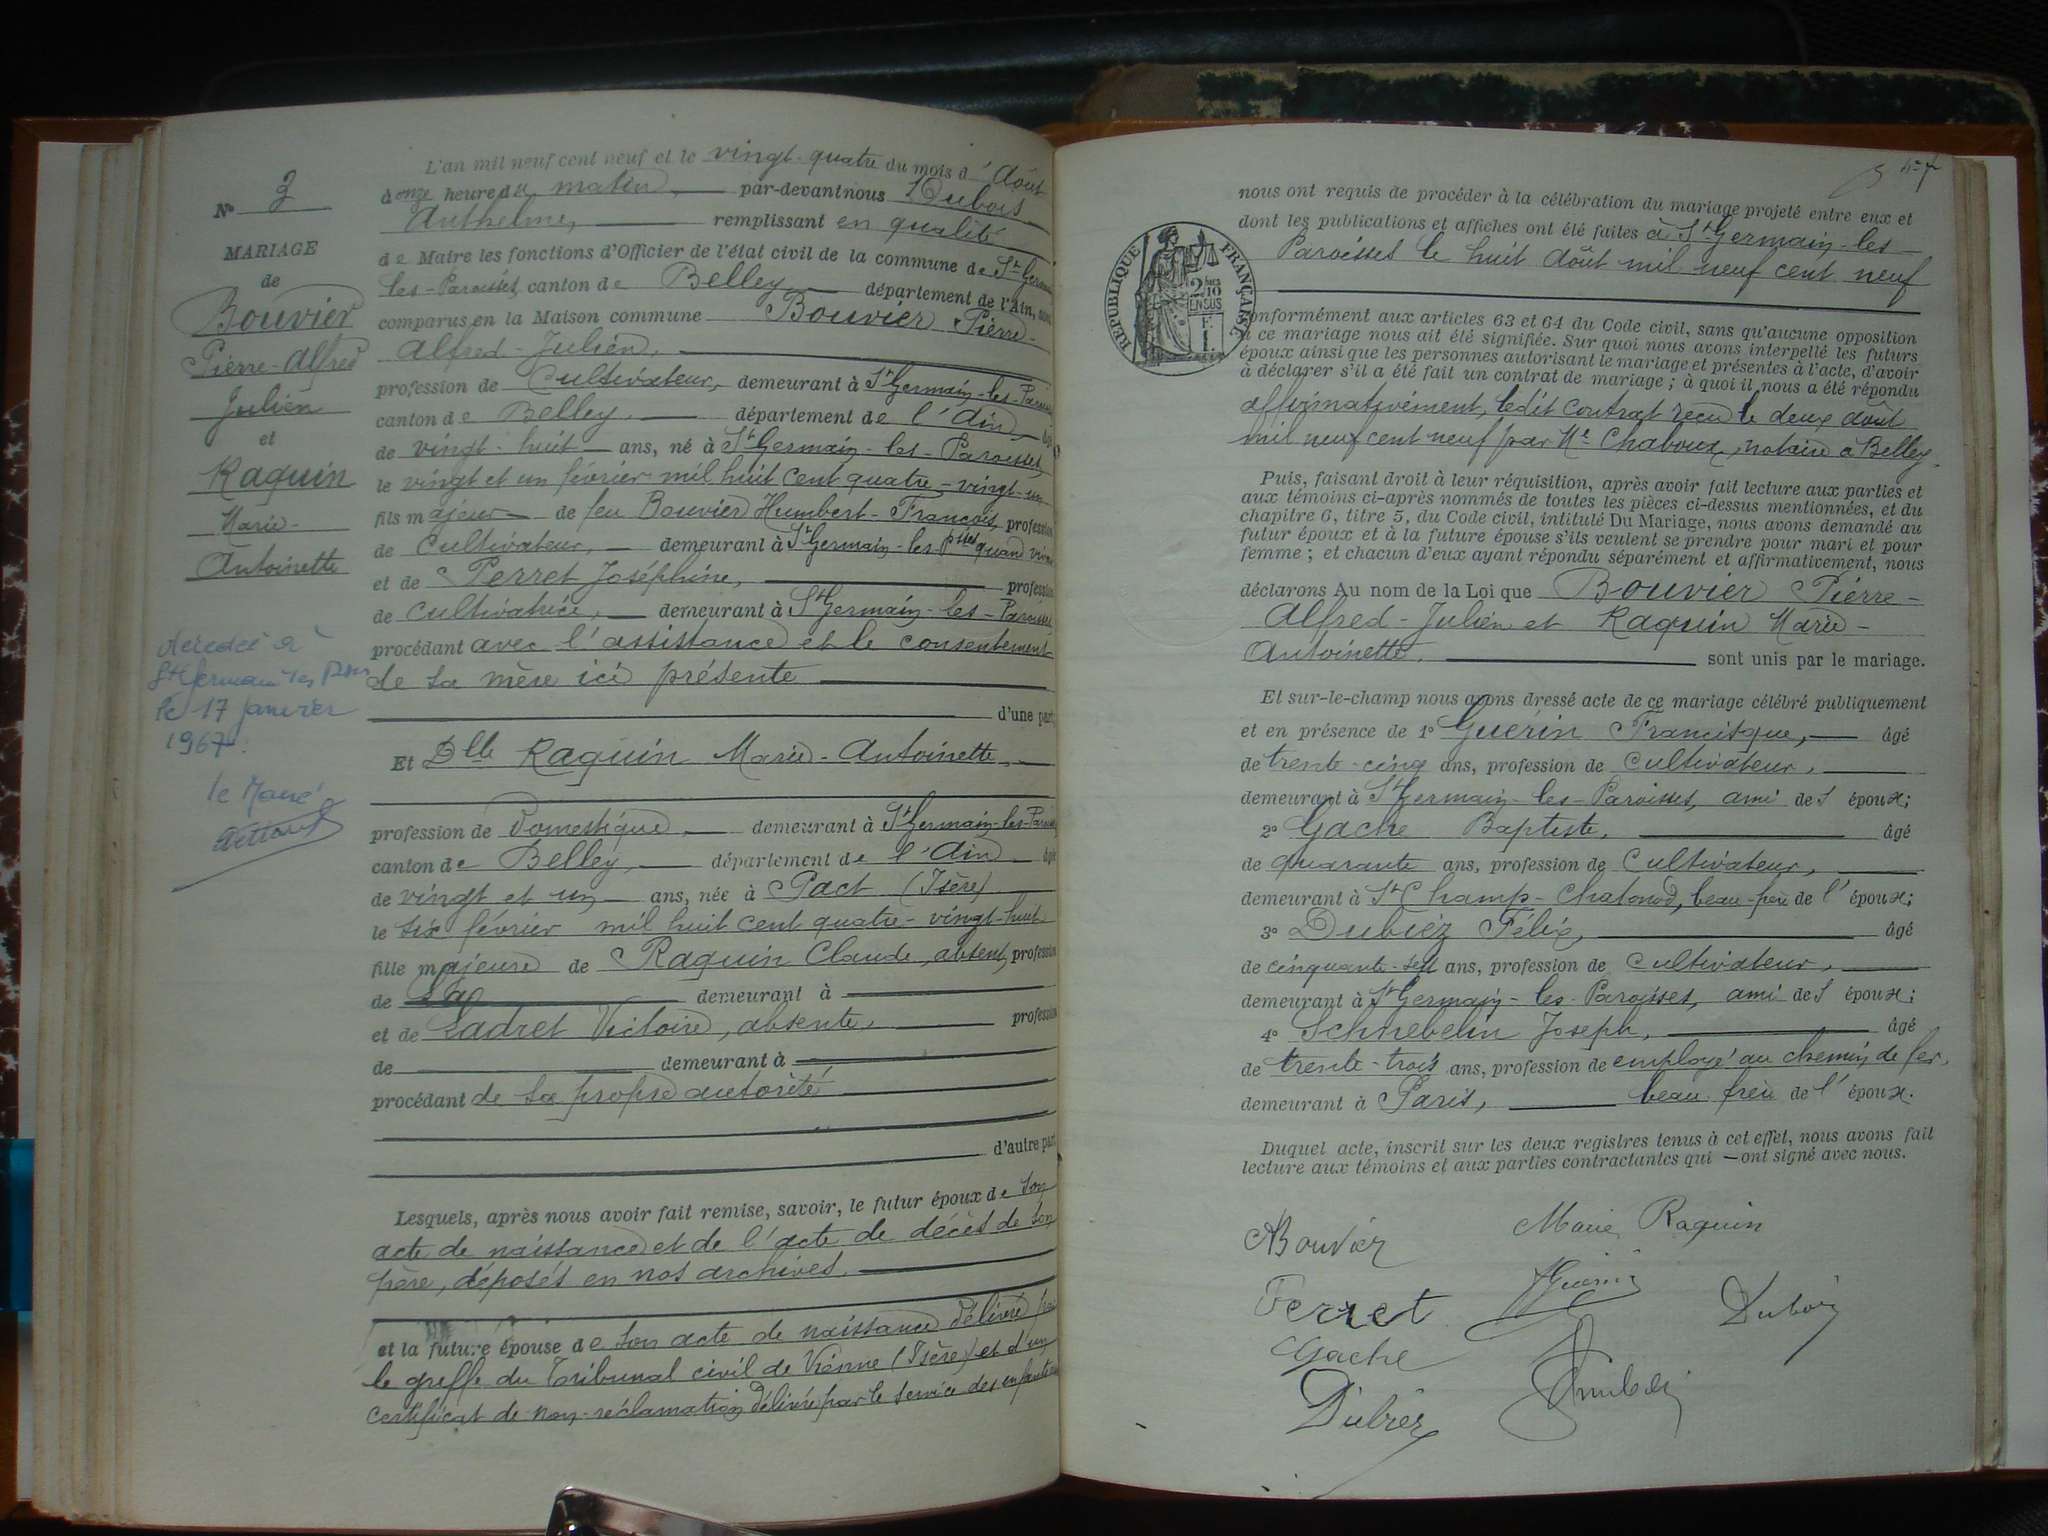 N° 3
MARIAGE
de
Bouvier
Pierre-Alfred
Julien
et
Raquin
Marie-
Antoinette
décédé à
St Germain les
le 17 janvier
1967.
le Maire
L'an mil neuf cent neuf et le vingt-quatre du mois d'Août
à onze heure du matin, par-devant nous Dubois
Anthelme, remplissant en qualité
de Maire les fonctions d'Officier de l'état civil de la commune de St Germain
les-Paroisses canton de Belley département de l'Ain, sont
comparus en la Maison commune Bouvier Pierre-
Alfred-Julien,
profession de Cultivateur, demeurant à St Germain-les-Paroisses
canton de Belley, département de l'Ain, âgé
de vingt-huit ans, né à St Germain-les-Paroisses,
le vingt et un février mil huit cent quatre-vingt-un
fils majeur de feu Bouvier Humbert-François, profession
de Cultivateur, demeurant à St Germain-les-psses quand vivait
et de Perret Joséphine, profession
de Cultivatrice, demeurant à St Germain-les-Paroisses
procédant avec l'assistance et le consentement
de sa mère ici présente
d'une part
Et Dlle Raquin Marie-Antoinette,
profession de Domestique, demeurant à St Germain-les-Paroisses
canton de Belley, département de l'Ain, âgée
de vingt et un ans, née à Pact (Isère)
le six février mil huit cent quatre-vingt-huit
fille majeure de Raquin Claude, absent, profession
de demeurant à
et de Ladret Victoire, absente, profession
de demeurant à
procédant de sa propre autorité
d'autre part
Lesquels, après nous avoir fait remise, savoir, le futur époux de son
acte de naissance et de l'acte de décès de son
père, déposés en nos archives.
et la future épouse de son acte de naissance délivré par
le greffe du Tribunal civil de Vienne (Isère) et d'un
certificat de non-réclamation délivré par le service des enfants
nous ont requis de procéder à la célébration du mariage projeté entre eux et
dont les publications et affiches ont été faites à St Germain-les-
Paroisses le huit août mil neuf cent neuf
RÉPUBLIQUE FRANÇAISE
2/10
EN SUS
conformément aux articles 63 et 64 du Code civil, sans qu'aucune opposition
à ce mariage nous ait été signifiée. Sur quoi nous avons interpellé les futurs
époux ainsi que les personnes autorisant le mariage et présentes à l'acte, d'avoir
à déclarer s'il a été fait un contrat de mariage ; à quoi il nous a été répondu
affirmativement, ledit contrat reçu le deux août
mil neuf cent neuf par Me Chaboux, notaire à Belley.
Puis, faisant droit à leur réquisition, après avoir fait lecture aux parties et
aux témoins ci-après nommés de toutes les pièces ci-dessus mentionnées, et du
chapitre 6, titre 5, du Code civil, intitulé Du Mariage, nous avons demandé au
futur époux et à la future épouse s'ils veulent se prendre pour mari et pour
femme ; et chacun d'eux ayant répondu séparément et affirmativement, nous
déclarons Au nom de la Loi que Bouvier Pierre-
Alfred-Julien et Raquin Marie-
Antoinette. sont unis par le mariage.
Et sur-le-champ nous avons dressé acte de ce mariage célébré publiquement
et en présence de 1° Guérin Francisque, âgé
de trente-cinq ans, profession de Cultivateur,
demeurant à St Germain-les-Paroisses, ami des époux;
2° Gache Baptiste, âgé
de quarante ans, profession de Cultivateur,
demeurant à St Champ-Chatonod, beau-père de l'époux;
3° Dubiez Félix, âgé
de cinquante-sept ans, profession de Cultivateur,
demeurant à St Germain-les-Paroisses, ami des époux;
4° Schnebelin Joseph, âgé
de trente-trois ans, profession de employé au chemin de fer,
demeurant à Paris, beau frère de l'époux.
Duquel acte, inscrit sur les deux registres tenus à cet effet, nous avons fait
lecture aux témoins et aux parties contractantes qui — ont signé avec nous.
ABouvier Marie Raquin
Perret Guérin Dubois
Gache
Dubiez